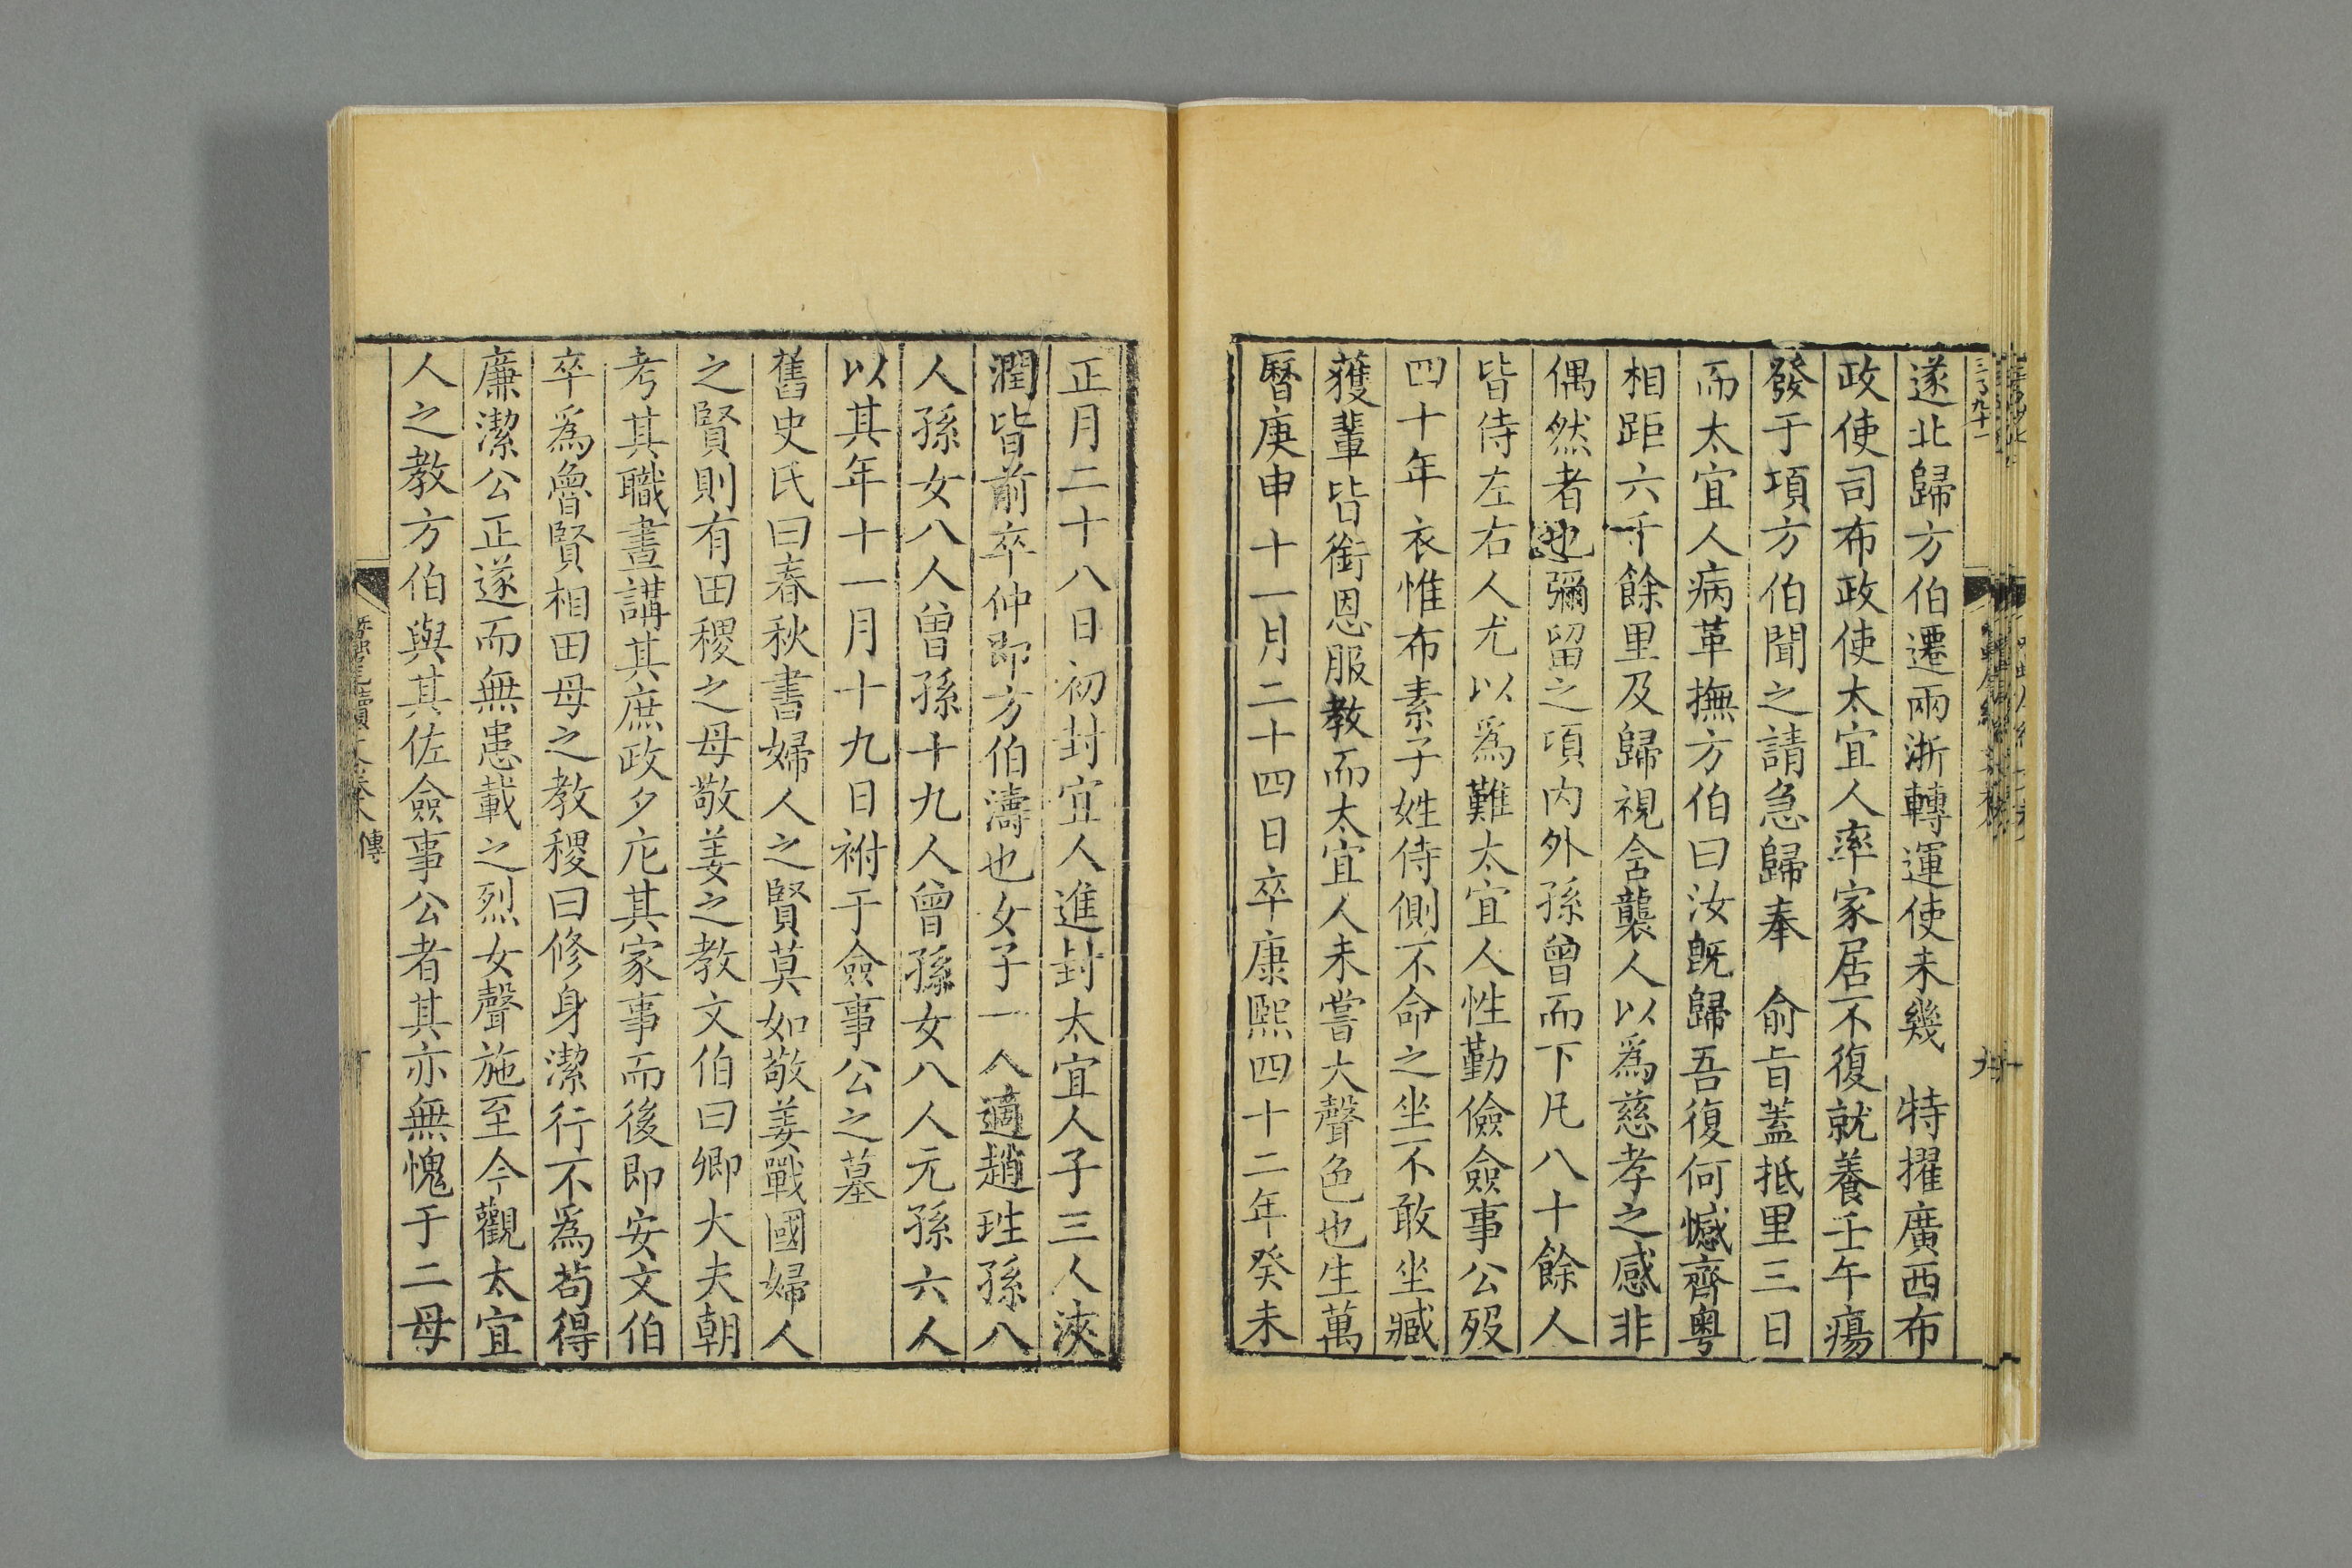 遂北歸方伯遷兩浙轉運使未幾　特擢廣西布
政使司布政使太宜人率家居不復就養壬午瘍
發于項方伯聞之請急歸奉　俞旨蓋抵里三日
而太宜人病革撫方伯曰汝旣歸吾復何憾齊粤
相距六千餘里及歸視含襲人以爲慈孝之感非
偶然者也彌留之頃內外孫曾而下凡八十餘人
皆侍左右人尤以爲難太宜人性勤儉僉事公歿
四十年衣惟布素子姓侍側不命之坐不敢坐臧
獲輩皆銜恩服教而太宜人未嘗大聲色也生萬
曆庚申十一月二十四日卒康熙四十二年癸未
正月二十八日初封宜人進封太宜人子三人浹
潤皆前卒仲即方伯濤也女子一人適趙珄孫八
人孫女八人曾孫十九人曾孫女八人元孫六人
以其年十一月十九日祔于僉事公之墓
舊史氏曰春秋書婦人之賢莫如敬姜戰國婦人
之賢則有田稷之母敬姜之教文伯曰卿大夫朝
考其職晝講其庶政夕庀其家事而後即安文伯
卒爲魯賢相田母之教稷曰修身潔行不爲苟得
廉潔公正遂而無患載之烈女聲施至今觀太宜
人之教方伯與其佐僉事公者其亦無愧于二母
傳